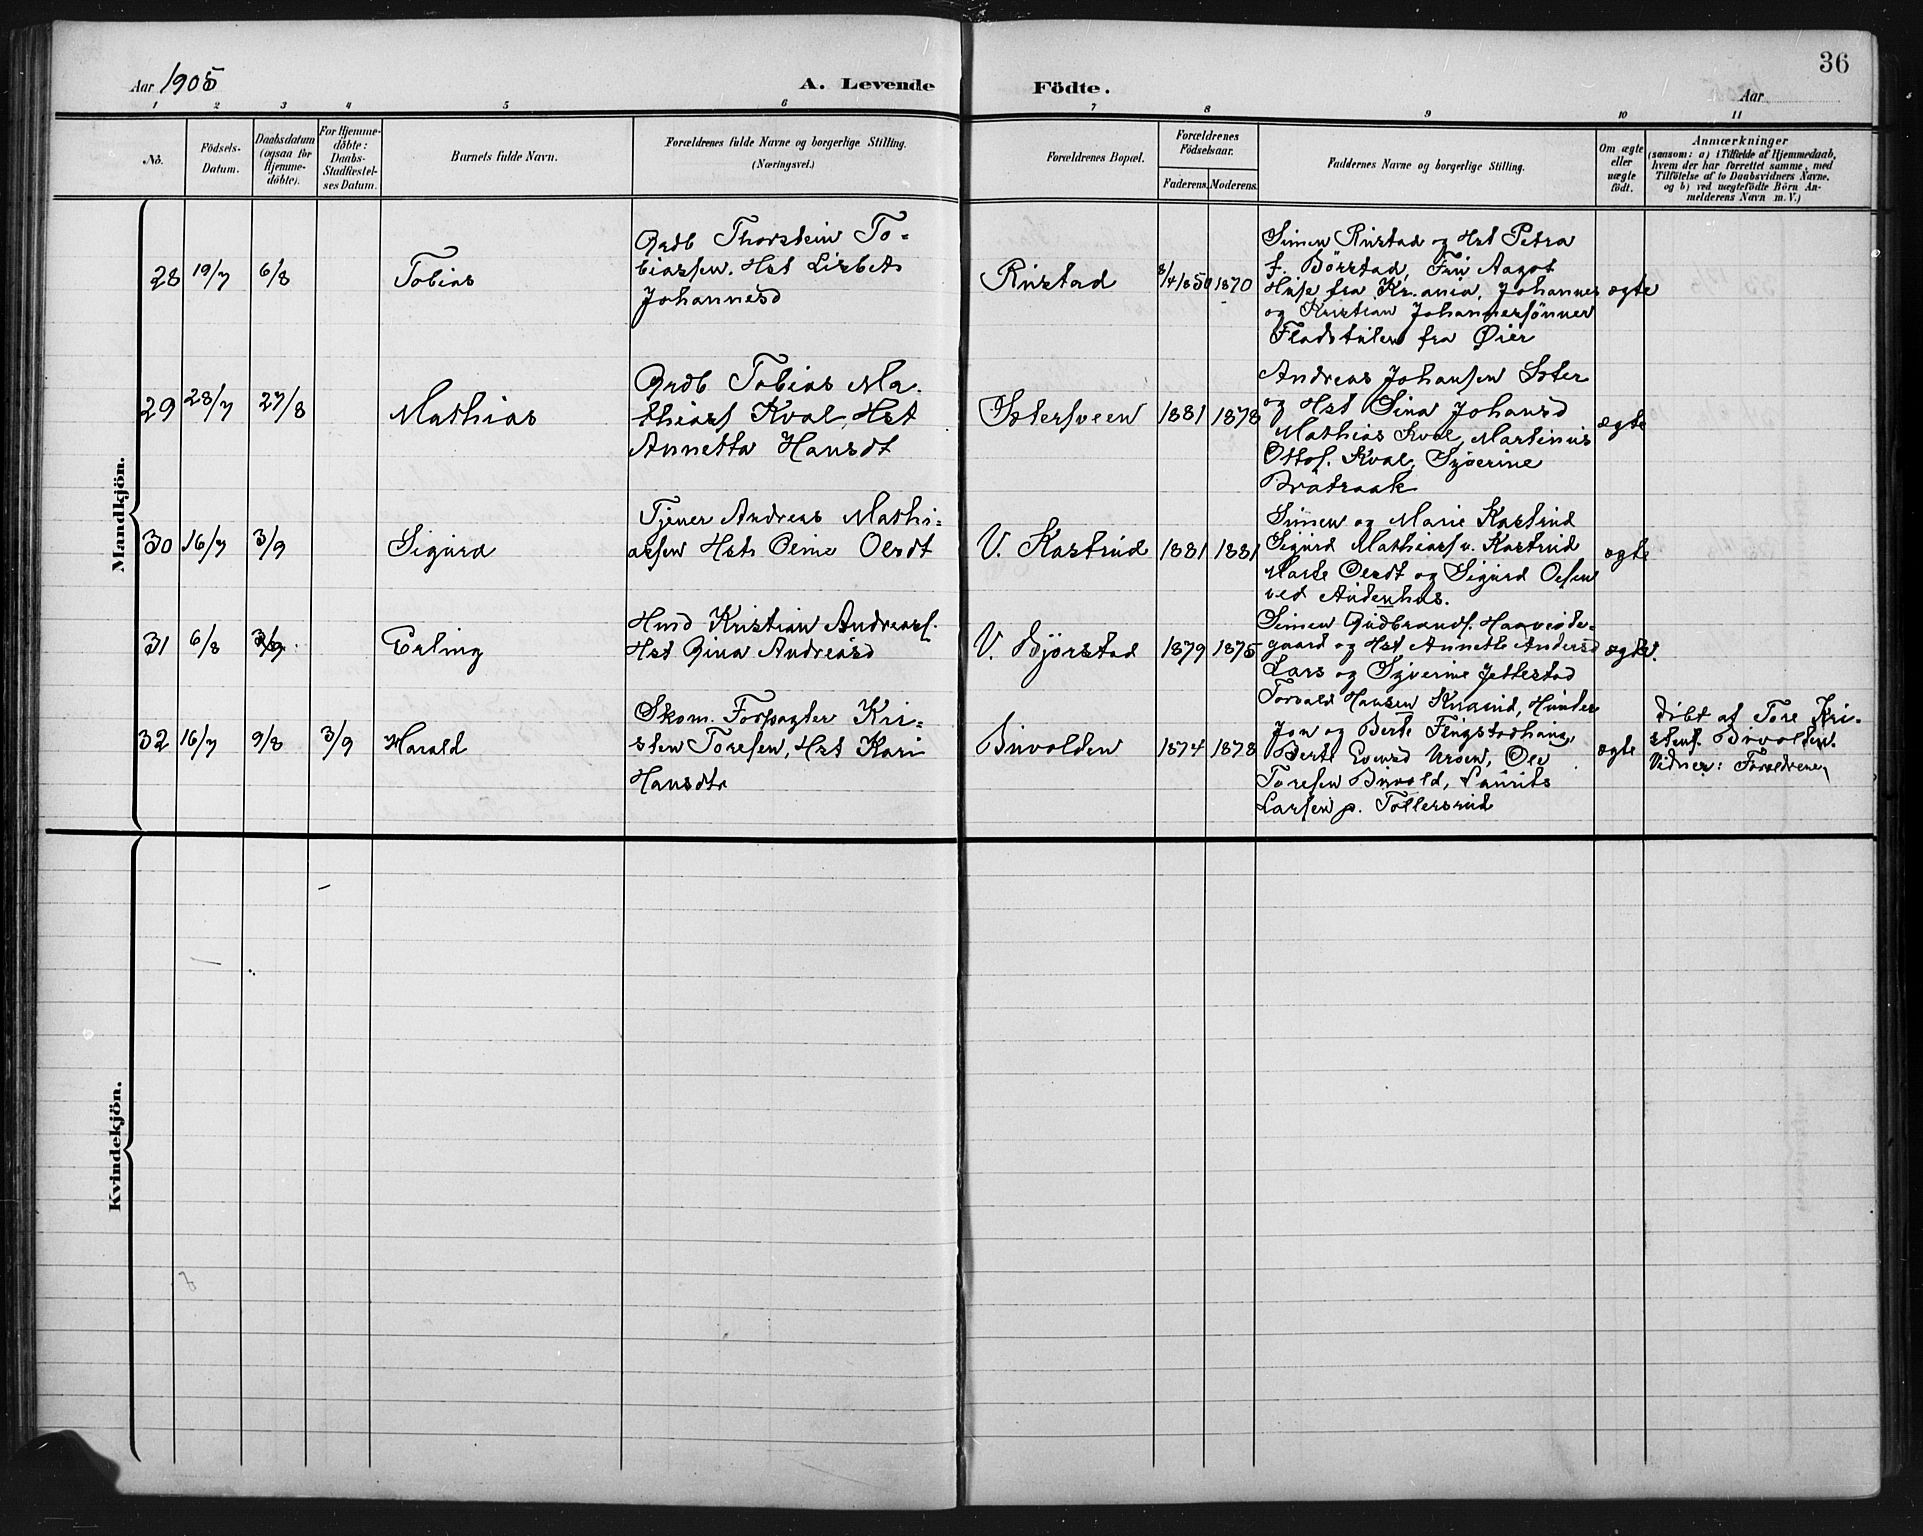 36
Aar 1905
A. Levende Födte.
Aar
1 2 3 4 5 6 7 8 9 10 11
No.
Födsels-
Datum.
Daabsdatum
(ogsaa for
Hjemme-
döbte).
For Hjemme-
döbte:
Daabs-
Stadfæstel-
ses Datum.
Barnets fulde Navn.
Forældrenes fulde Navne og borgerlige Stilling.
(Næringsvei.)
Forældrenes Bopæl.
Forældrenes
Födselsaar.
Faderens.
Moderens.
Faddernes Navne og borgerlige Stilling.
Om ægte
eller
uægte
födt.
Anmærkninger
(saasom: a) i Tilfælde af Hjemmedaab,
hvem der har forrettet samme, med
Tilföielse af to Daabsvidners Navne,
og b) ved uægtefödte Börn An-
melderens Navn m. V.)
Mandkjön.
28
19/7
6/8
Tobias
Grdb Thorstein To-
biassen. Hst Lisbet
Johannesd
Rustad
3/4 1850
1870
Simen Rustad og Hst Petra
f. Börstad, Frü Aagot
Huse fra Kr.ania, Johannes
og Kristian Johannessönner
Fladstulen fra Öier
ægte
29
28/7
27/8
Mathias
Grdb Tobias Ma-
thiass Kval, Hst
Annetta Hansdt
Istersveen
1881
1878
Andreas Johansen Ister
og Hst Sina Johansd
Mathias Kval, Martinus
Ottos. Kval, Syverine
Bratraak
ægte
30
16/7
3/9
Sigurd
Tjener Andreas Mathi-
assen Hst Oline Olsdt
V. Kastrud
1881
1881
Simen og Marie Kastrud
Sigurd Mathiass v. Kastrud
Marte Olsdt og Sigurd Olsen
ved Audenhus.
ægte
31
6/8
3/9
Erling
Husd Kristian Andreass.
Hst Gina Andreasd
V. Bjørstad
1879
1875
Simen Gudbrands. Haaviöde-
gaard og Hst Annette Andersd
Lars og Syverine Jettestad
ægte.
32
16/7
9/8
3/9
Harald
Skom. Forpagter Kri-
sten Toresen, Hst Kari
Hansdtr
Buvolden
1874
1878
Torvald Hansen Knarud, Hunder
Jon og Berte Fingstadhaug,
Berte Evensd Uroen, Ole
Toresen Buvold, Laurits
Larsen p. Tollersrud
ægte
Döbt af Tore Kri-
stens. Buvolden.
Vidner: Forældrene
Kvindekjön.